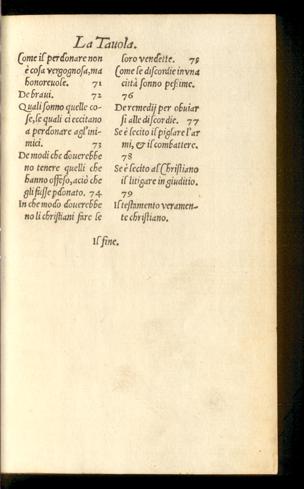 La Tavola.
Come il perdonare non
è cosa vergognosa, ma
honorevole. 71
De bravi. 72
Quali sonno quelle co-
se, le quali ci eccitano
a perdonare agl'ini-
mici. 73
De modi che doverebbe
no tenere quelli che
hanno offeso, aciò che
gli fusse pdonato. 74
In che modo doverebbe
no li christiani fare le
loro vendette. 75
Come le discordie in una
città sonno pessime.
76
De remedij per obviar
si alle discordie. 77
Se è lecito il pigliare l'ar
mi, & il combattere.
78
Se è lecito al Christiano
il litigare in giuditio.
79
Il testamento veramen-
te christiano.
Il fine.